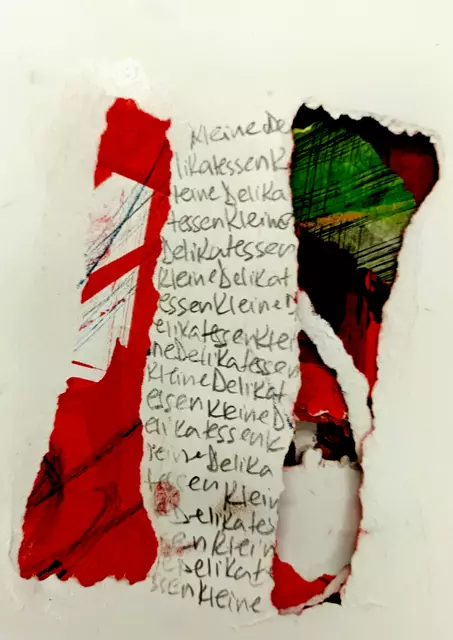 Meine De
likatessenk
leineDelika
tessenkleine
Delikatessen
kleineDelikat
essenkleineD
elikatessenklei
neDelikatessen
kleineDelikat
essenkleineD
elikatessenk
leineDelika
tessenklein
Delikates
senklein
eDelikat
essenkleine